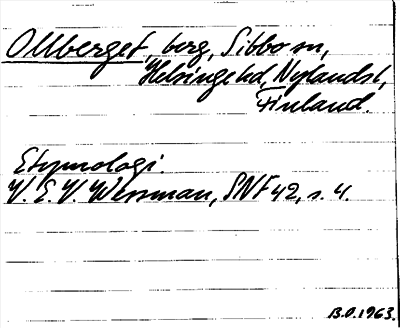 Ollberget, berg, Sibbo sn,
Helsinge hd, Nylands l,
Finland.
Etymologi.
V. E. V. Wessman, SNF 42, s. 4.
B.O. 1963.